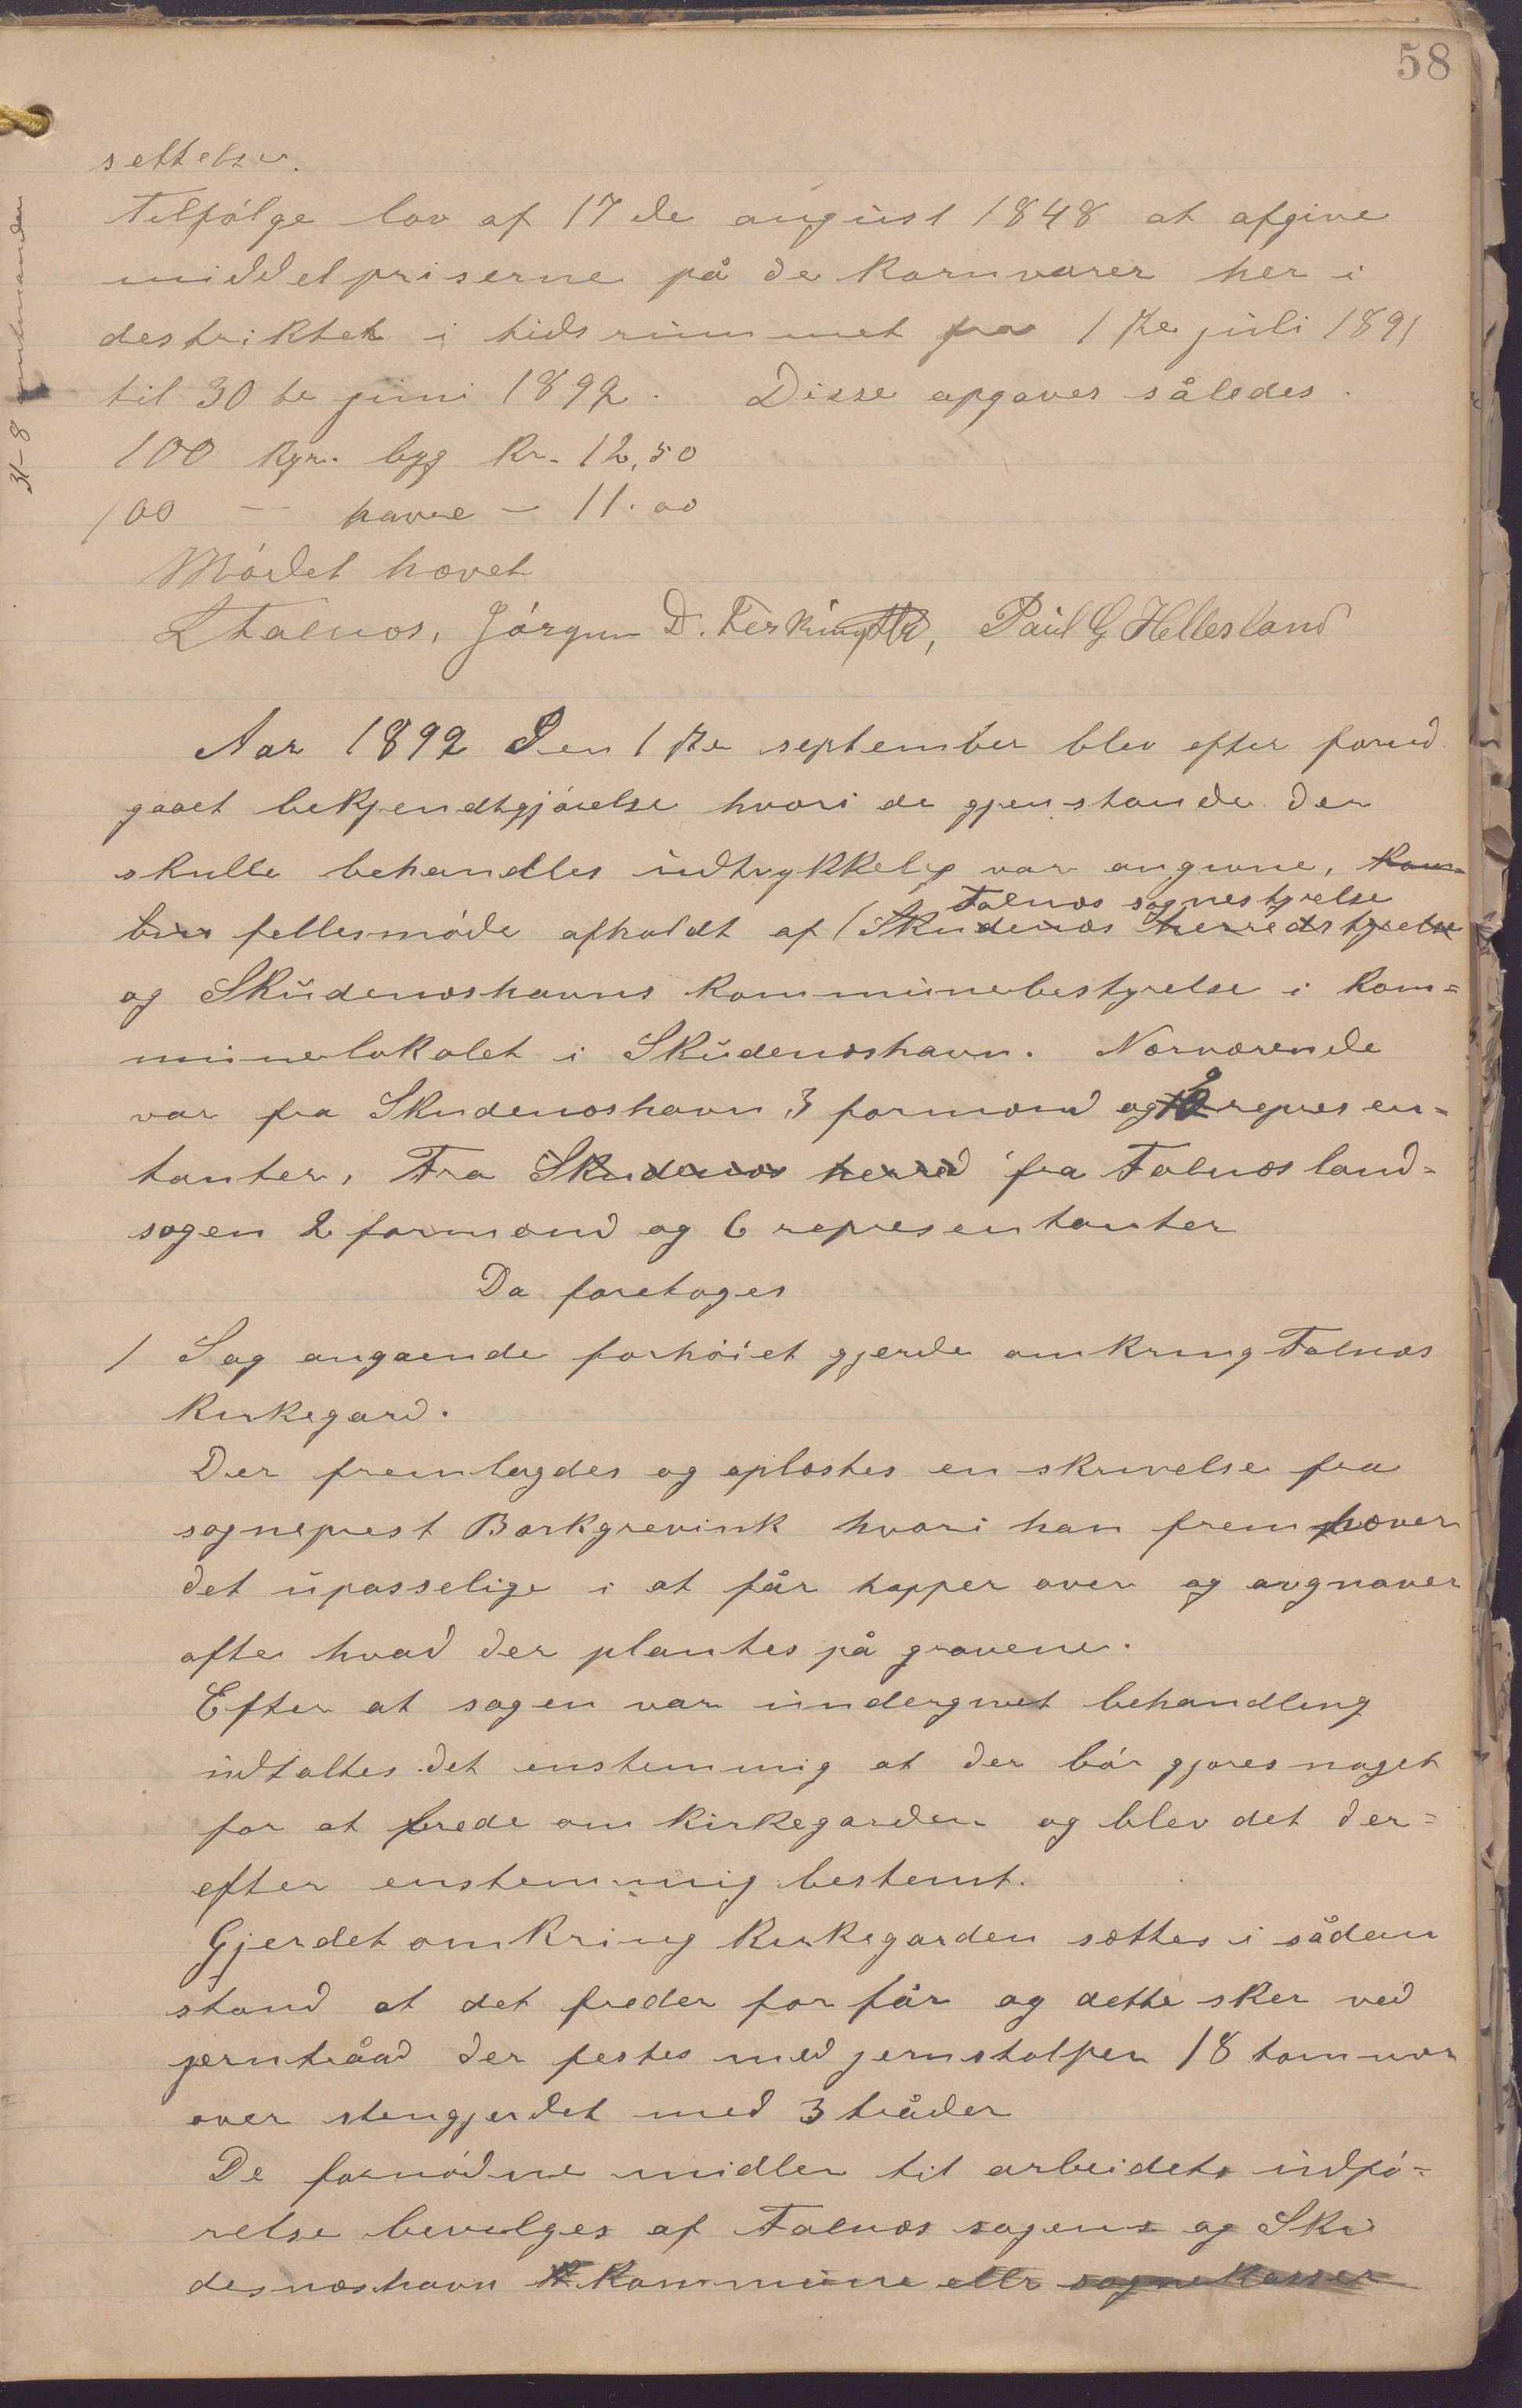 58
settelser.
Tilfølge lov af 17de august 1848 at afgive
middelpriserne på de kornvarer her i
destriktet i tidsrummet fra 1ste juli 1891
til 30te juni 1892. Disse opgaves således.
100 kgr. byg kr. 12,50
100 — havre — 11.00
Mødet hævet
L Falnæs, Jørgen D. Ferkingstd, Paul G Hellesland
31-8 amtmanden
Aar 1892 Den 1ste september blev efter forud
gaaet bekjendtgjørelse hvori de gjenstande der
skulle behandles udtrykkelig var angivne, kom-
bin fellesmøde afholdt af Skudenæs herredstyrelse
Falnæs sognestyrelse
og Skudenæshavns kommunebestyrelse i kom=
munelokalet i Skudenæshavn. Nærværende
var fra Skudenæshavn 3 formænd og 9 represen=
tanter, Fra Skudenæs herred fra Falnæs land=
sogen 2 formænd og 6 representanter
Da foretoges
1 Sag angaende forhøiet gjerde omkring Falnæs
kirkegard.
Der fremlagdes og oplæstes en skrivelse fra
sogneprest Borkgrevink hvori han fremhæver
det upasselige i at får hopper over og avgnaver
ofte hvad der plantes på gravene.
Efter at sagen var undergivet behandling
udtaltes det enstemmig at der bør gjøres noget
for at frede om kirkegarden og blev det der=
efter enstemmig bestemt.
Gjerdet omkring kirkegarden sættes i sådan
stand at det freder for får og dette sker ved
jerntråad der festes med jernstolper 18 tommer
over stengjerdet med 3 tråder
De fornødne midler til arbeidets udfø=
relse bevilges af Falnæs sogens og Sku
desnæshavn kommune ellr sognekasser